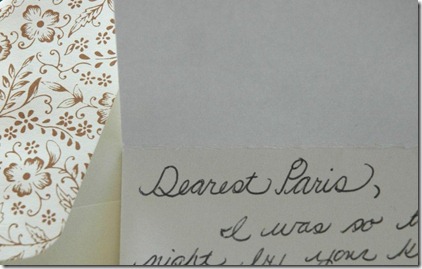 Dearest Paris,
I was so t
night by your k